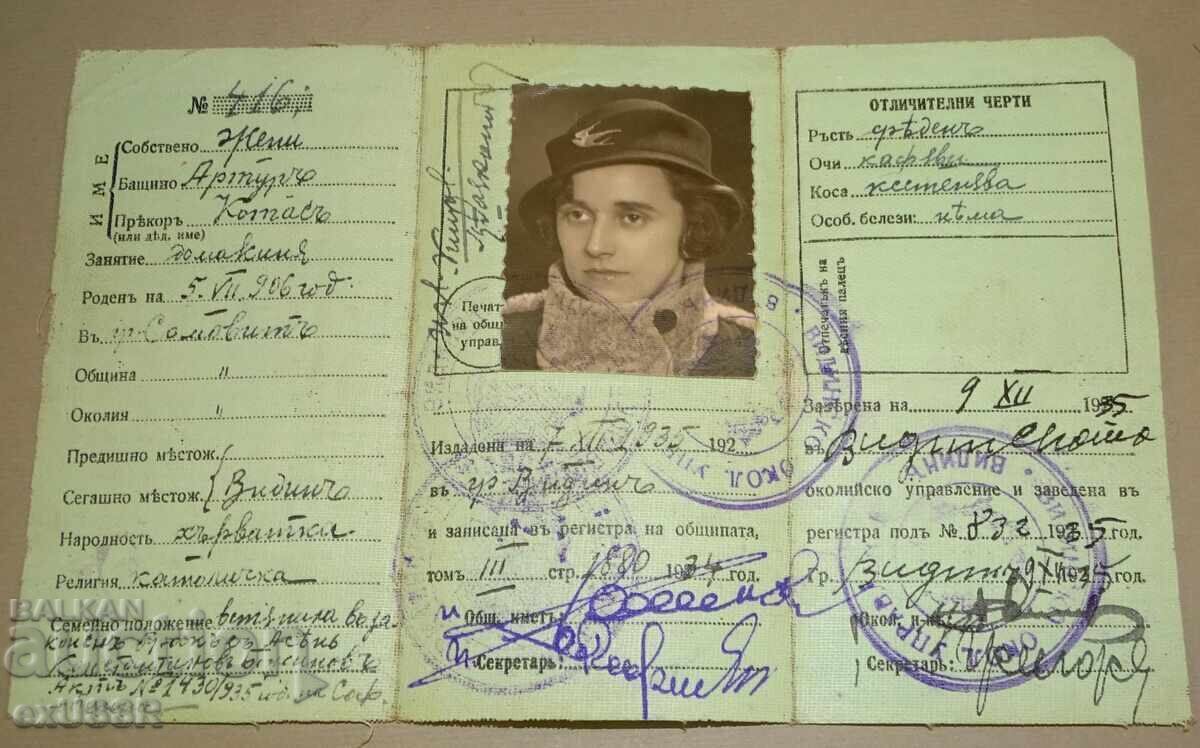 № 416
ИМЕ
Собствено Жени
Бащино Артуръ
Прѣкоръ Котасъ
(или дѣд. име)
Занятие домакиня
Роденъ на 5. VII 906 год.
Въ гр. Сомовитъ
Община "
Околия "
Предишно мѣстож.
Сегашно мѣстож. Видинъ
Народность хърватка
Религия католичка
Семейно положение встѫпила въ за
коненъ бракъ съ Асѣнь
Константиновъ
Актъ № 1430/935 год. на Соф.
Печат
на общ.
управ.
Издадена на 7. XII 1935 192
въ гр. Видинъ
и записана въ регистра на общината,
томъ III стр. 1880 1934 год.
Общ. кметъ
Секретарь:
ОТЛИЧИТЕЛНИ ЧЕРТИ
Ръстъ срѣденъ
Очи кафяви
Коса кестенява
Особ. белези: нѣма
Отпечатъкъ на
лѣвия палецъ
Завѣрена на 9 XII 1935
въ Видинската
околийско управление и заведена въ
регистра подъ № 832 1935 год.
Гр. Видинъ 9 XII 1935
Окол. н-къ:
Секретарь:
ВИДИНСКО ОКОЛ. УПРАВ
ВИДИНЪ
BALKAN
auction
exussR